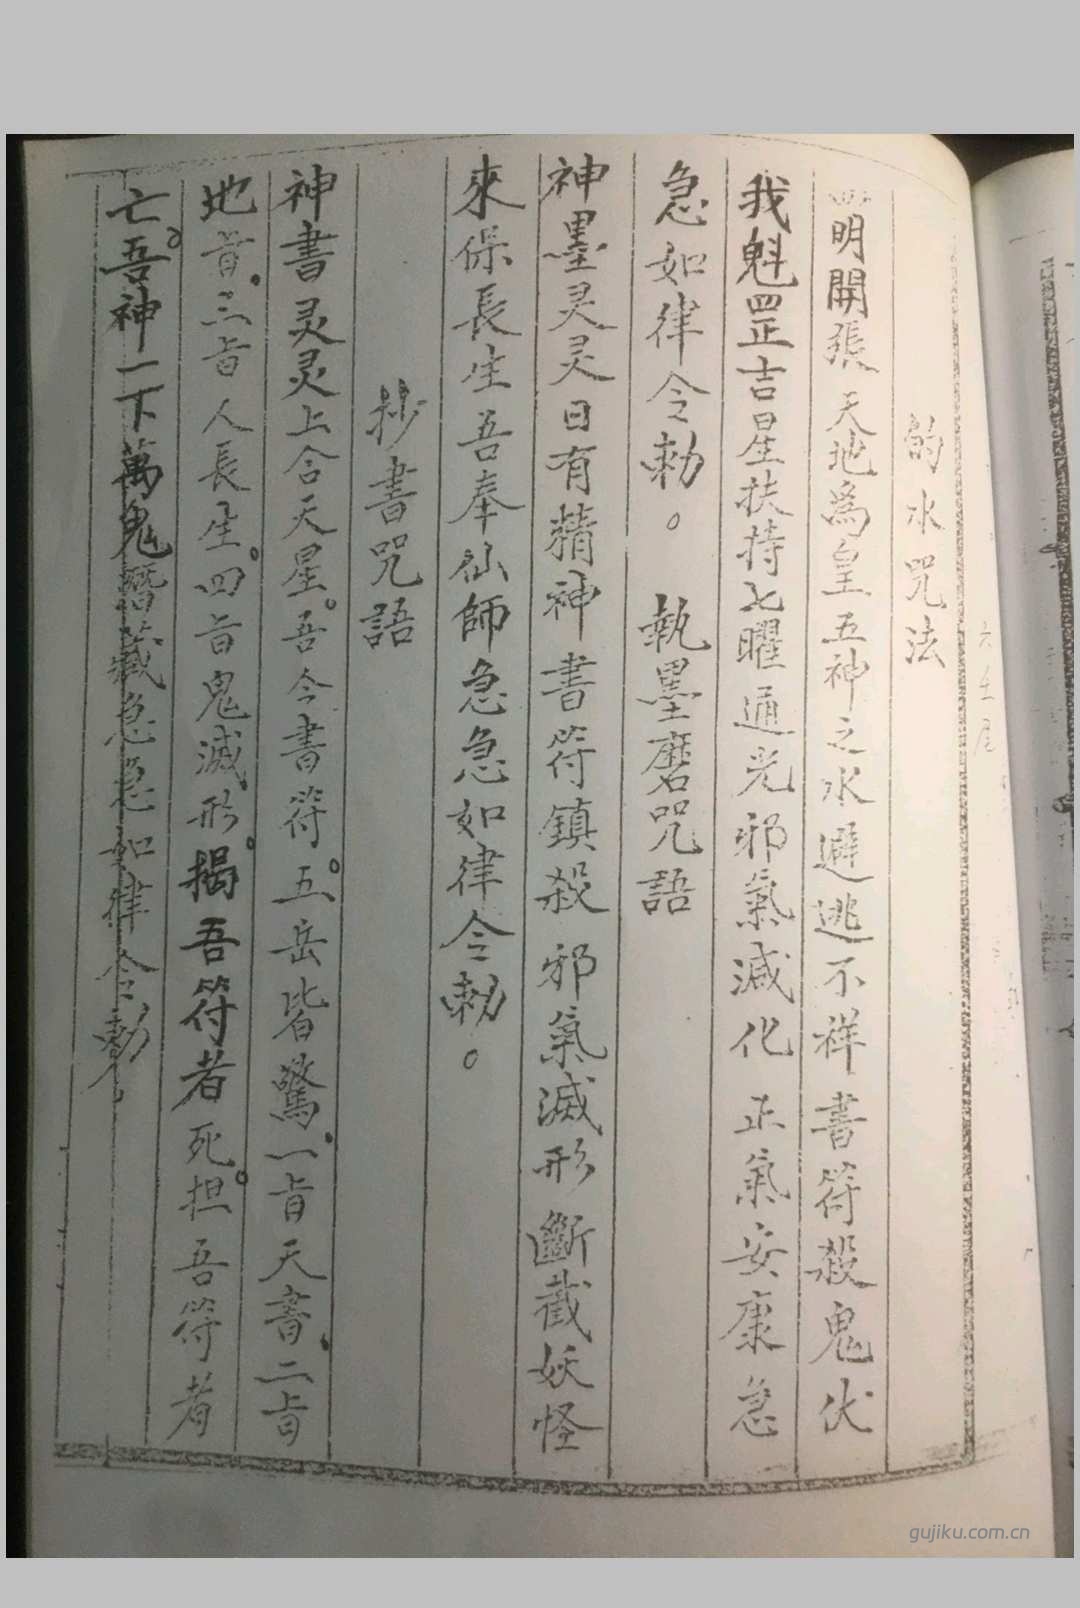 的水咒法
明開張天地為皇五神之水避逃不祥書符殺鬼伏
我魁罡吉星扶持七曜通光邪氣減化正氣安康急
急如律令勅。執墨磨咒語
神墨灵灵日有精神書符鎮殺邪氣滅形斷截妖怪
來保長生吾奉仙師急急如律令勅。
抄書咒語
神書灵灵上合天星。吾今書符。五岳皆驚、一旨天書、二旨
地旨、三旨人長生。四旨鬼滅形。揭吾符者死。担吾符者
亡。吾神一下萬鬼暗藏急急如律令勅
gujiku.com.cn